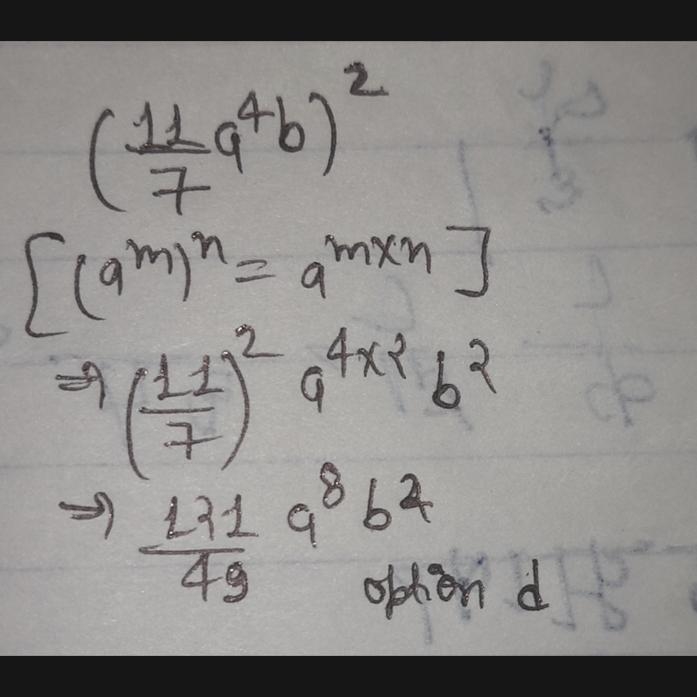 (11/7 a⁴b)²
[(aᵐ)ⁿ = aᵐˣⁿ]
⇒ (11/7)² a⁴ˣ² b²
⇒ 121/49 a⁸ b²
option d